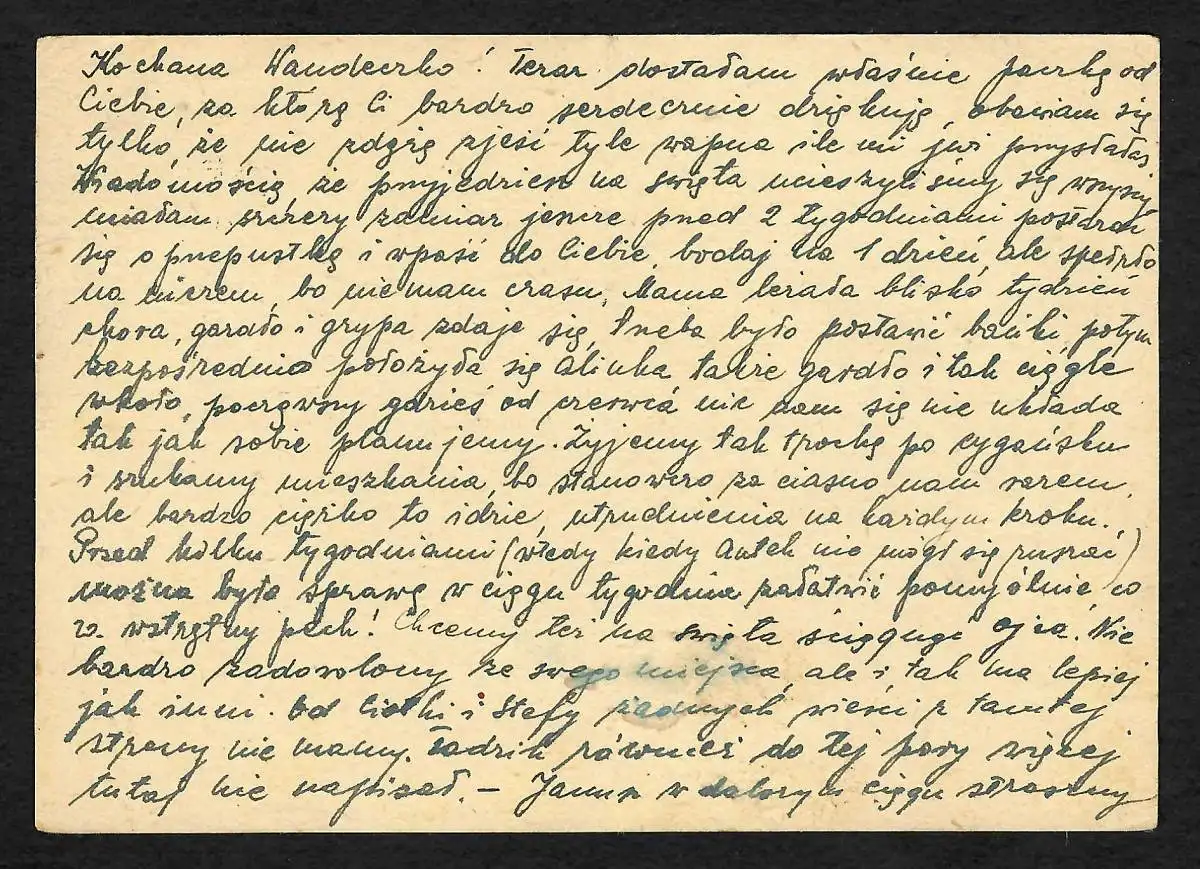 Kochana Wandeczko! Teraz dostałam właśnie paczkę od
Ciebie, za którą Ci bardzo serdecznie dziękuję, obawiam się
tylko, że nie zdążę zjeść tyle wapna ile mi już przysłałaś
Wiadomością że przyjedziesz na święta ucieszyliśmy się wszyscy
miałam szczery zamiar jeszcze przed 2 tygodniami postarać
się o przepustkę i wpaść do Ciebie, bodaj na 1 dzień, ale spełzło
na niczem, bo nie mam czasu, Mama leżała blisko tydzień
chora, gardło i grypa zdaje się, trzeba było postawić bańki, potym
bezpośrednio położyła się Alinka także gardło i tak ciągle
wkoło, począwszy gdzieś od czerwca nic nam się nie układa
tak jak sobie planujemy. Żyjemy tak trochę po cygańsku
i szukamy mieszkania, bo stanowczo za ciasno nam razem,
ale bardzo ciężko to idzie, utrudnienia na każdym kroku.
Przed kilku tygodniami (wtedy kiedy Antek nie mógł się ruszać)
można było sprawę w ciągu tygodnia załatwić pomyślnie, co
za wstrętny pech! Chcemy też na święta ściągnąć ojca. Nie
bardzo zadowolony ze swego miejsca, ale i tak ma lepiej
jak inni. Od Ciotki i Stefy żadnych wieści z tamtej
strony nie mamy. Ładzik również do tej pory więcej
tutaj nie napisał. – Janusz w dalszym ciągu straszny